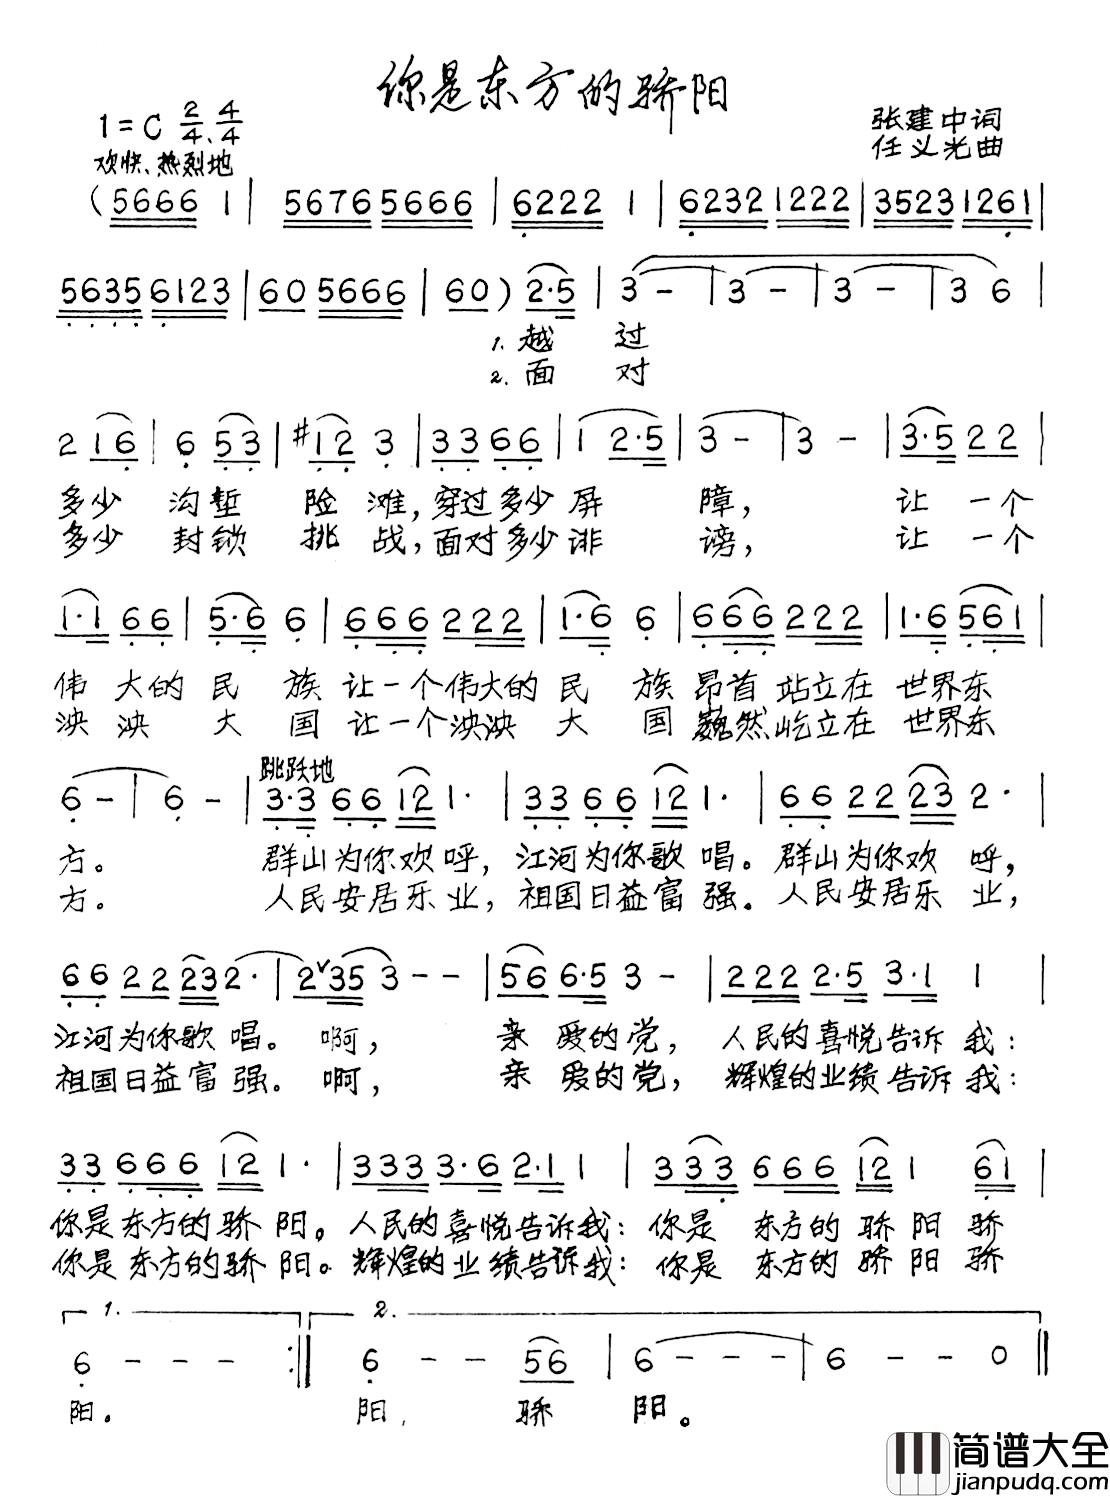 你是东方的骄阳
1=C 2/4、4/4
张建中词
任义光曲
欢快、热烈地
(5666 1 | 5676 5666 | 6222 1 | 6232 1222 | 3523 1261 |
5635 6123 | 60 5666 | 60) 2·5 | 3 - | 3 - | 3 - | 3 6 |
1. 越 过
2. 面 对
2 16 | 6 53 | #12 3 | 33 66 | 1 2·5 | 3 - | 3 - | 3·5 22 |
多少 沟堑 险 滩,穿过多少屏 障, 让 一个
多少 封锁 挑 战,面对多少诽 谤, 让 一个
1·1 66 | 5·6 6 | 666 222 | 1·6 6 | 666 222 | 1·6 561 |
伟 大的 民 族 让一个伟大的 民 族 昂首 站立在 世界东
泱 泱 大 国 让一个泱泱 大 国 巍然屹立在 世界东
跳跃地
6 - | 6 - | 3·3 66 12 1· | 33 66 12 1· | 66 22 23 2· |
方。 群山为你欢 呼,江河为你歌 唱。群山为你欢 呼,
方。 人民安居乐 业,祖国日益富 强。人民安居乐 业,
66 22 23 2· | 2∨35 3 - - | 56 6·5 3 - | 222 2·5 3·1 1 |
江河为你歌 唱。 啊, 亲 爱的党, 人民的喜悦告诉 我:
祖国日益富 强。 啊, 亲 爱的党, 辉煌的业绩告诉 我:
33 666 12 1· | 333 3·6 2·1 1 | 333 666 12 1 61 |
你是东方的骄 阳。人民的喜悦告诉我:你是 东方的 骄 阳 骄
你是东方的骄 阳。辉煌的业绩告诉我:你是 东方的 骄 阳 骄
1. 2.
6 - - - :‖ 6 - - 56 | 6 - - - | 6 - - 0 ‖
阳。 阳, 骄 阳。
简谱大全
jianpudq.com